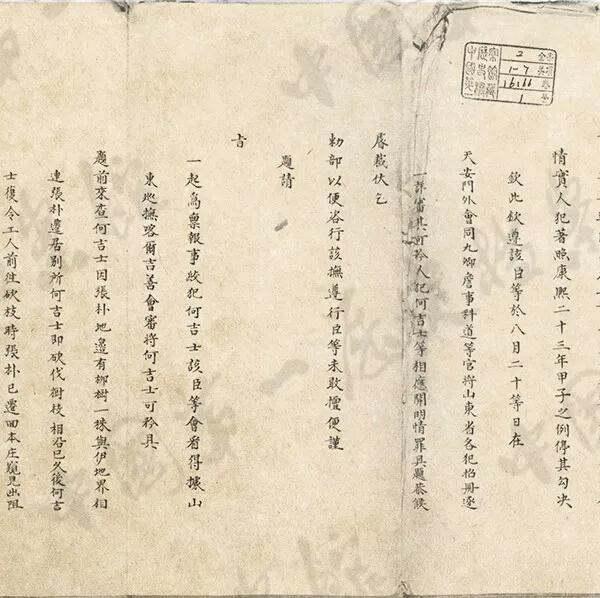 情實人犯著照康熙二十三年甲子之例停其勾决
欽此欽遵該臣等於八月二十等日在
天安門外會同九卿詹事科道等官將山東省各犯招冊逐
一詳審其可矜人犯何吉士等相應開明情罪具題恭候
睿裁伏乞
勅部以便咨行該撫遵行臣等未敢擅便謹
題請
旨
一起為稟報事絞犯何吉士該臣等會看得據山
東巡撫喀爾吉善會審將何吉士可矜具
題前來查何吉士因張朴地邊有柳樹一株與伊地界相
連張朴遷居別所何吉士即砍伐樹枝相沿已久後何吉
士復令工人前往砍枝時張朴已遷回本庄窺見出阻